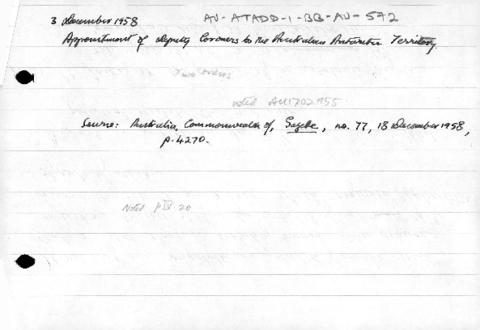 3 December 1958 AU-ATADD-1-BB-AU-592
Appointment of deputy Coroners to the Australian Antarctic Territory.
noted AU1702 1955
Source: Australia, Commonwealth of, Gazette, no. 77, 18 December 1958,
p. 4270.
Noted p 20